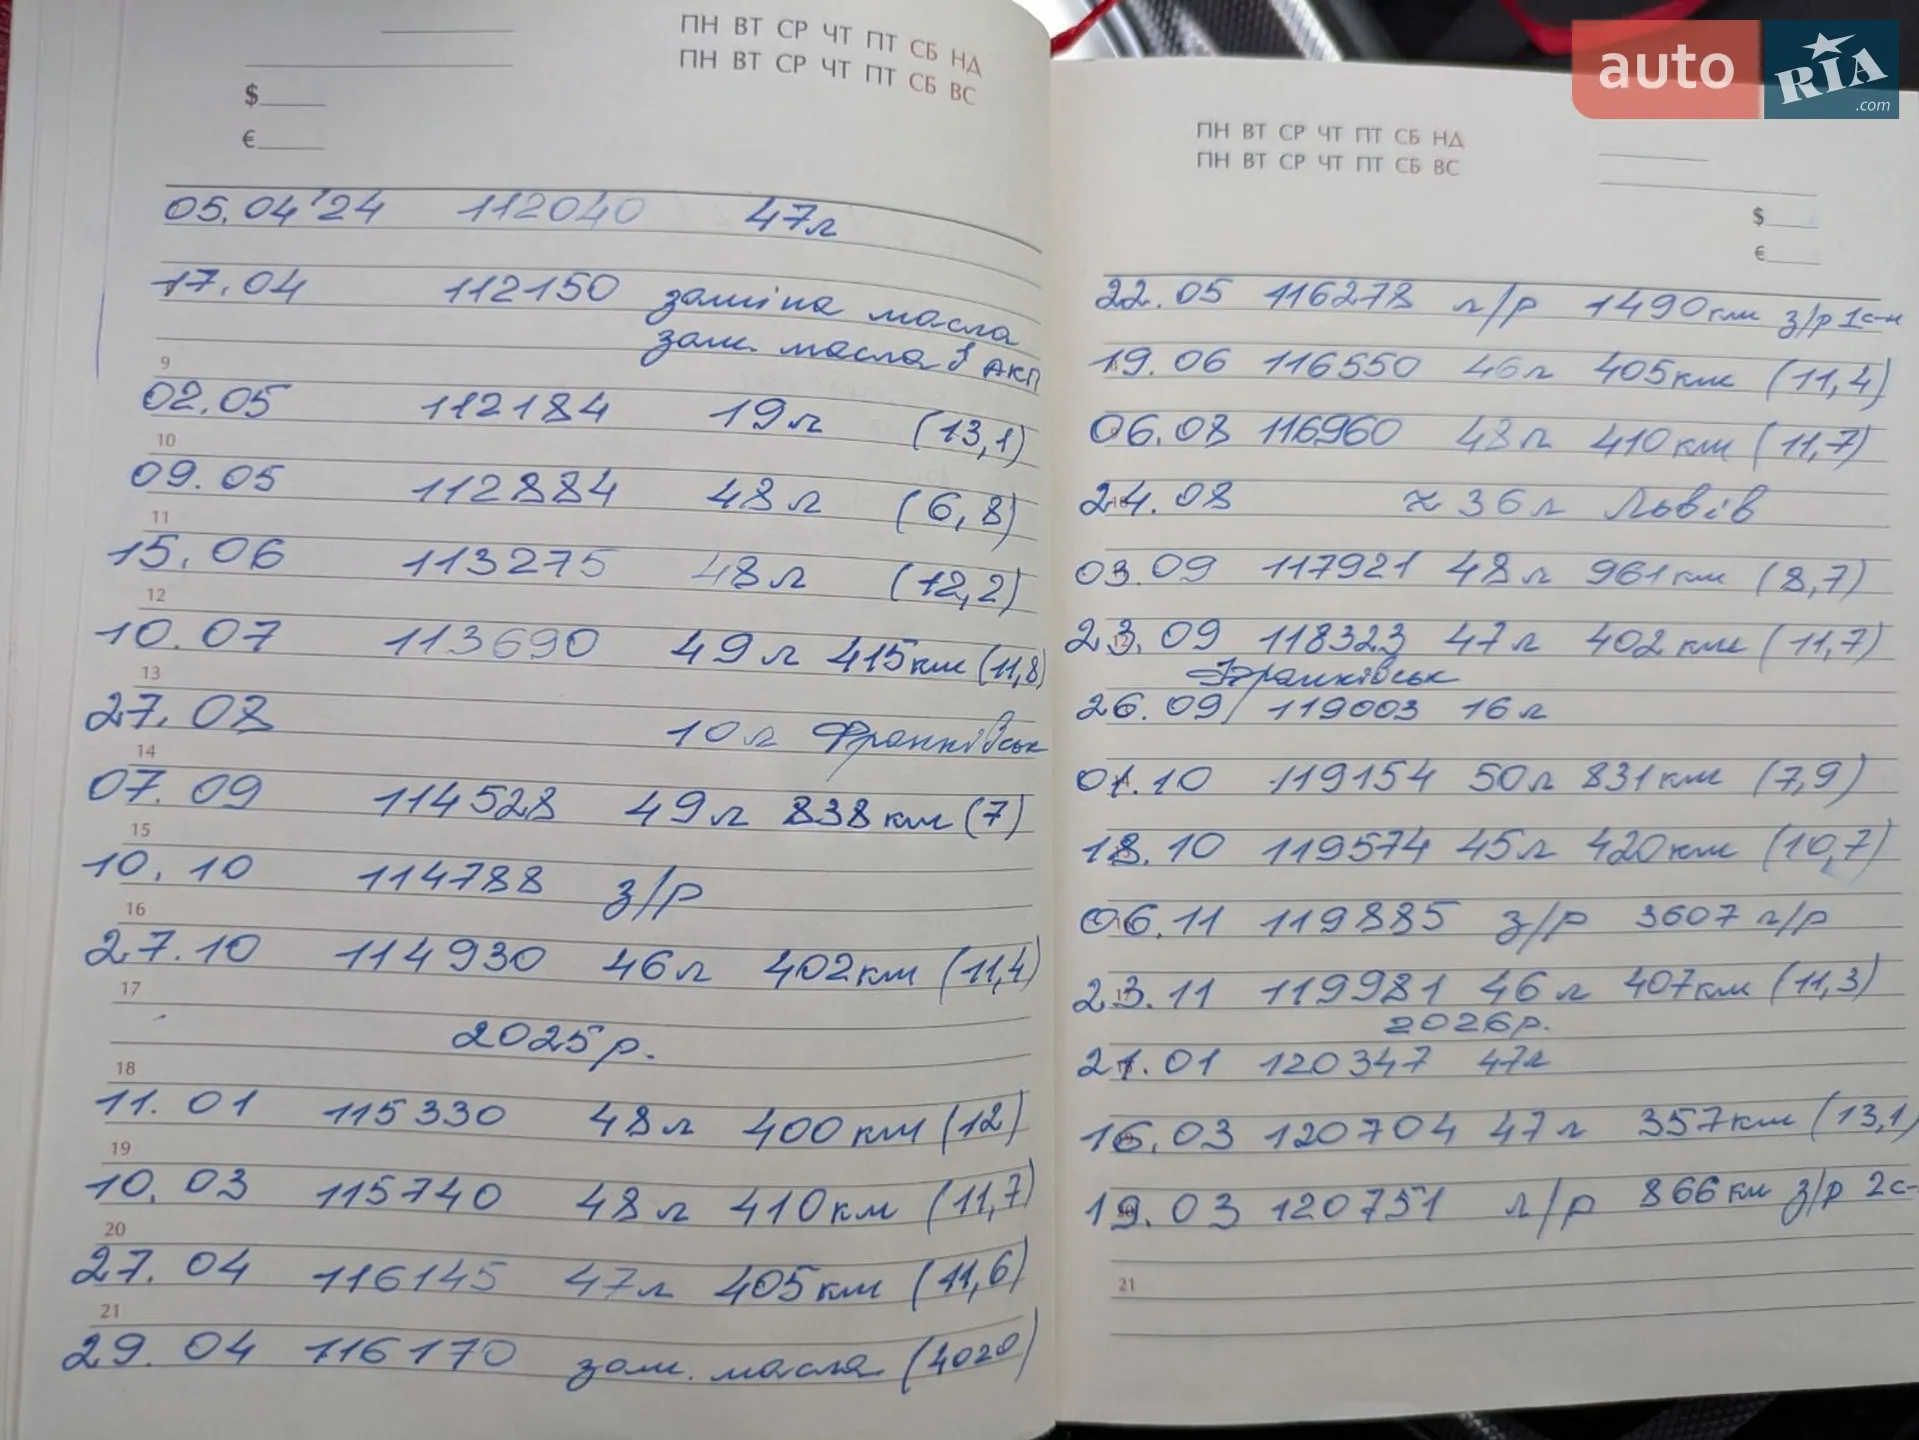 ПН ВТ СР ЧТ ПТ СБ НД
ПН ВТ СР ЧТ ПТ СБ ВС
$
€
05.04'24 112040 47л
17.04 112150 заміна масла
зам. масла в АКП
9
02.05 112184 19л (13,1)
10
09.05 112884 48л (6,8)
11
15.06 113275 48л (12,2)
12
10.07 113690 49л 415км (11,8)
13
27.08 10л Франківськ
14
07.09 114528 49л 838км (7)
15
10.10 114788 з/р
16
27.10 114930 46л 402км (11,4)
17
2025р.
18
11.01 115330 48л 400км (12)
19
10.03 115740 48л 410км (11,7)
20
27.04 116145 47л 405км (11,6)
21
29.04 116170 зам. масла (4020)
auto RIA .com
ПН ВТ СР ЧТ ПТ СБ НД
ПН ВТ СР ЧТ ПТ СБ ВС
$
€
22.05 116278 л/р 1490км з/р
19.06 116550 46л 405км (11,4)
06.08 116960 48л 410км (11,7)
24.08 ≈ 36л Львів
03.09 117921 48л 961км (8,7)
23.09 118323 47л 402км (11,7)
Франківськ
26.09/ 119003 16л
01.10 119154 50л 831км (7,9)
18.10 119574 45л 420км (10,7)
06.11 119885 з/р 3607 л/р
23.11 119981 46л 407км (11,3)
2026р.
21.01 120347 47л
16.03 120704 47л 357км (13,1)
19.03 120751 л/р 866км з/р 2с-
21